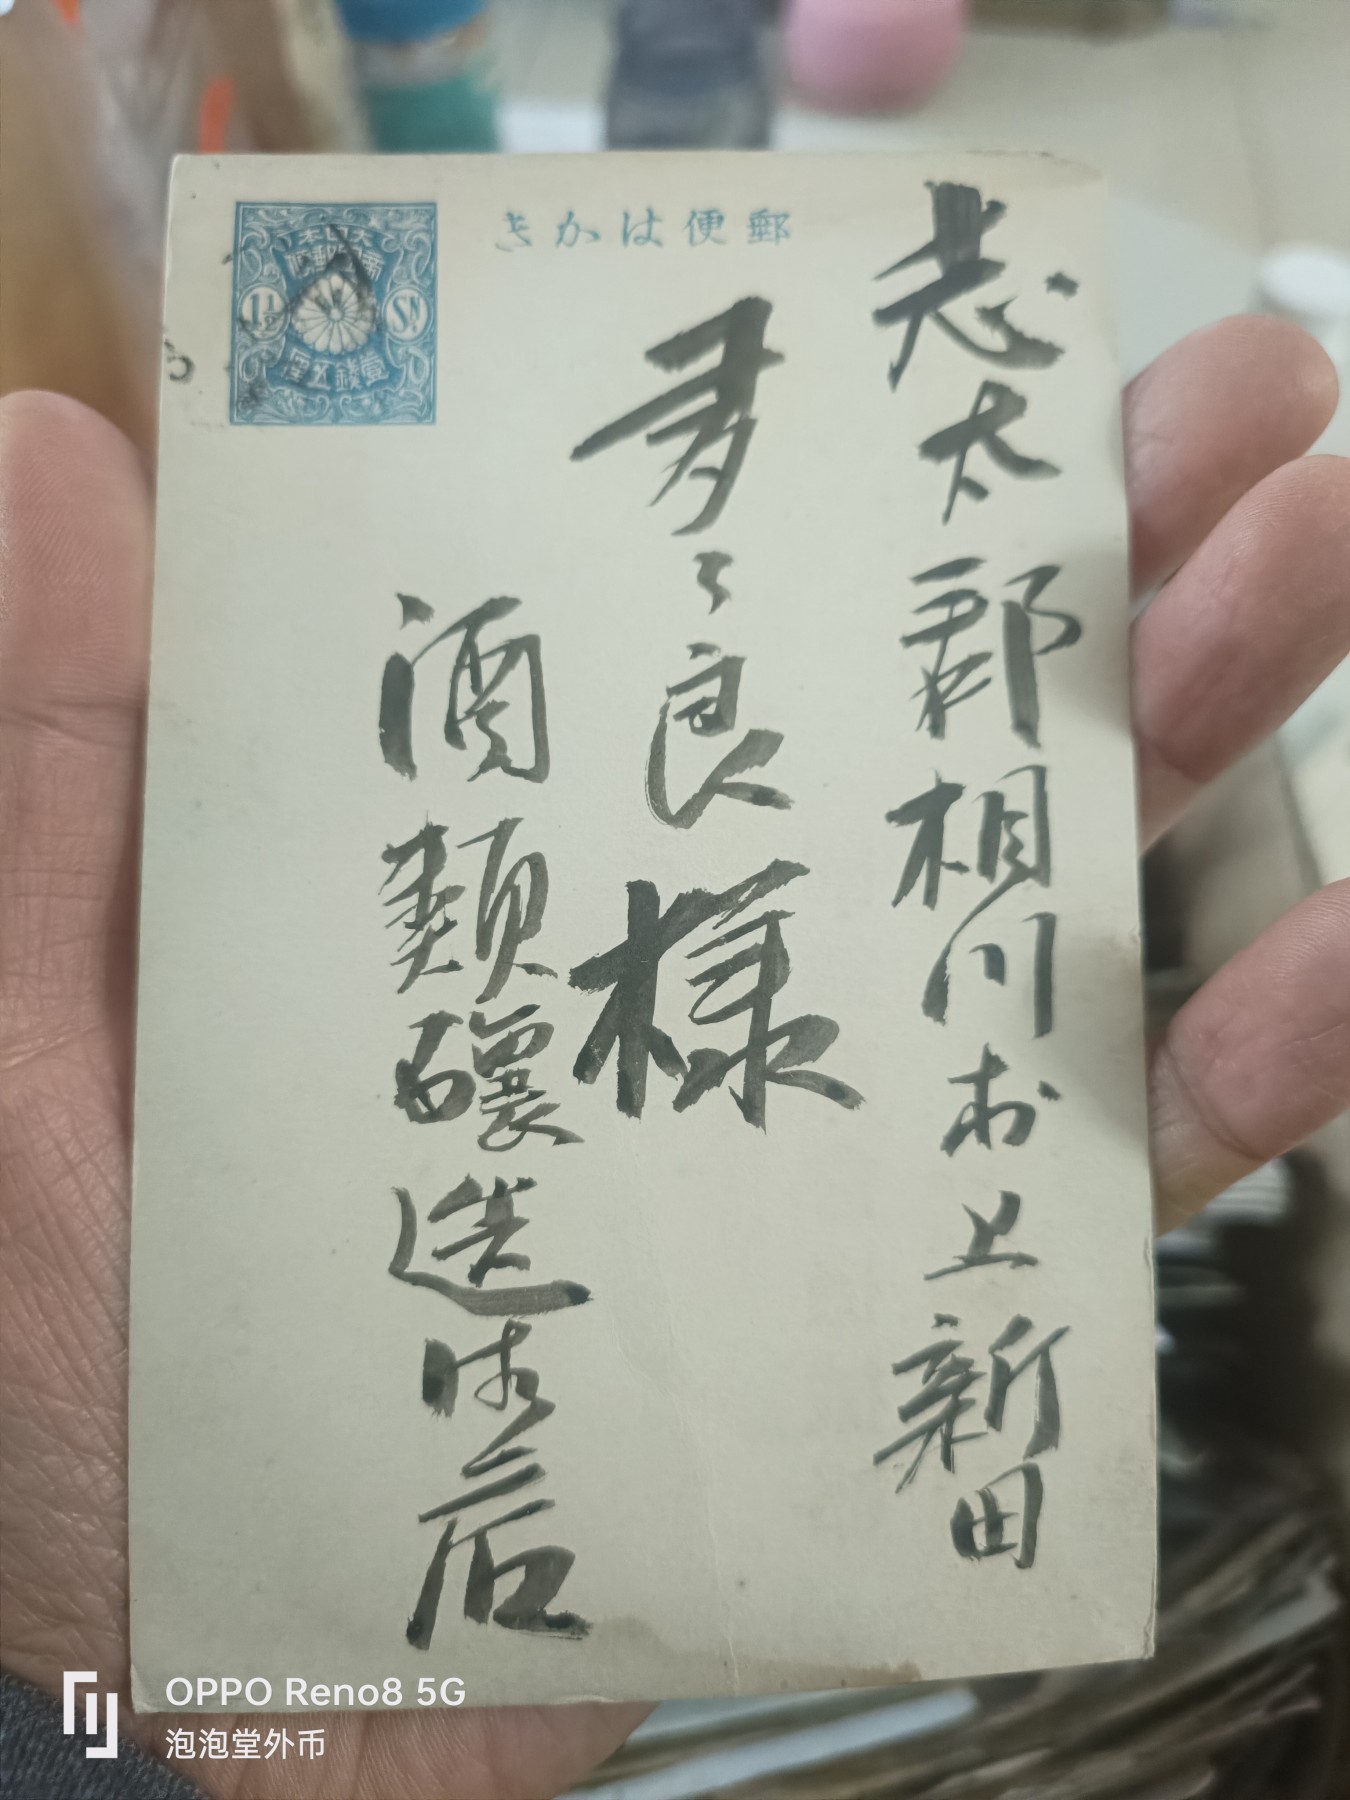 郵便はかき
大日本帝國郵便
1½ Sn
壹錢五厘
志太郡相川村上新田
多々良様
酒類釀造
OPPO Reno8 5G
泡泡堂外币